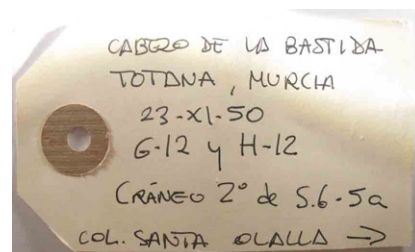 CABEZO DE LA BASTIDA
TOTANA, MURCIA
23-XI-50
G-12 y H-12
CRÁNEO 2º de S.6-5a
COL. SANTA OLALLA →